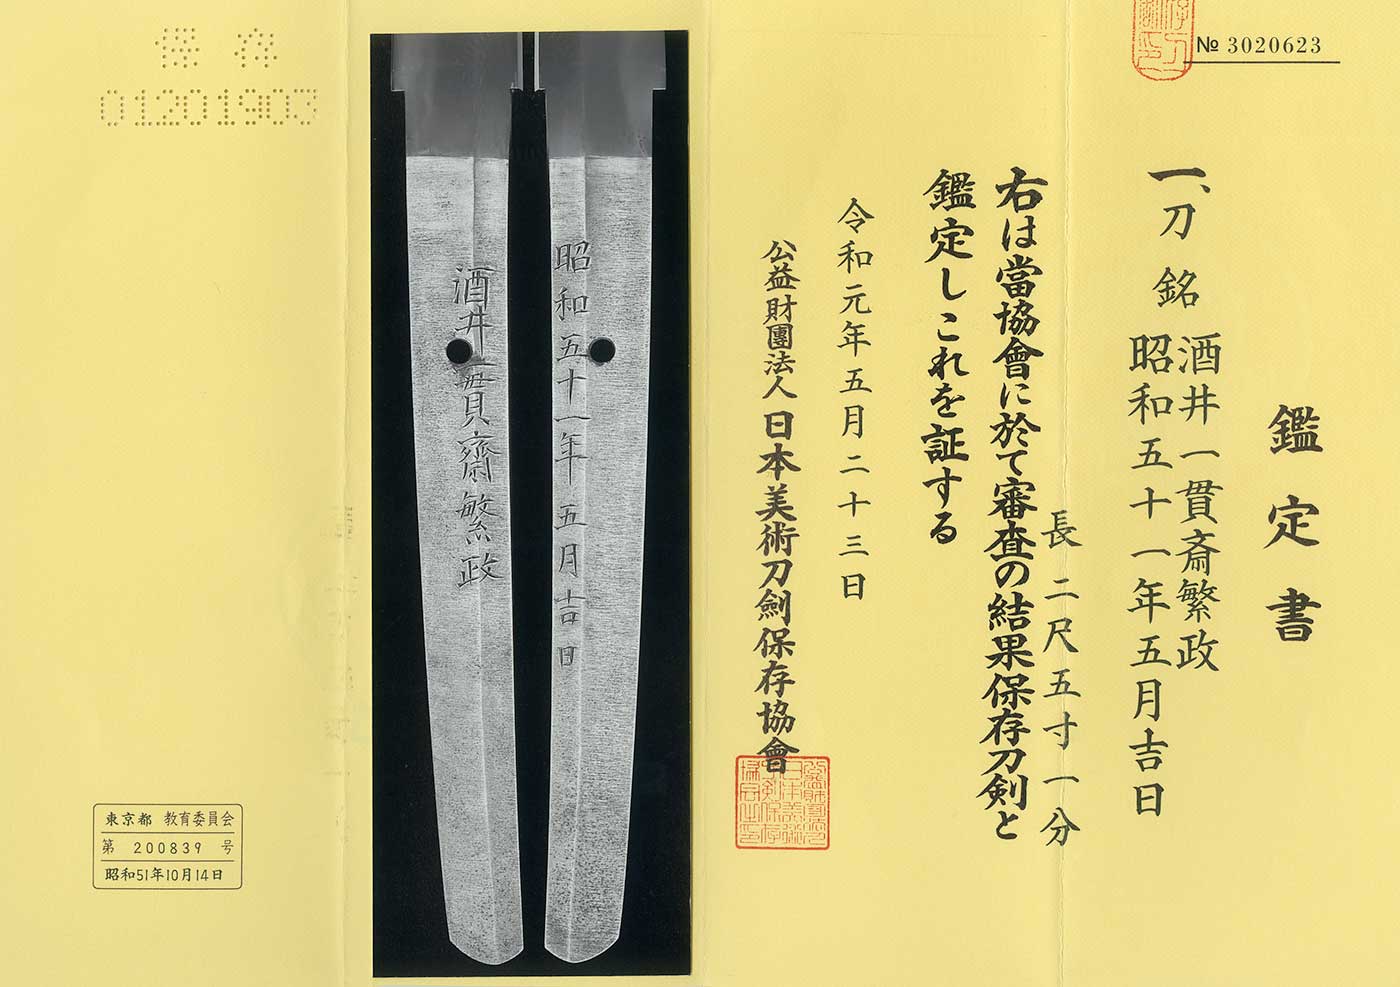 № 3020623
鑑定書
一、刀 銘 酒井一貫斎繁政
昭和五十一年五月吉日
長 二尺五寸一分
右は當協會に於て審査の結果保存刀剣と
鑑定しこれを証する
令和元年五月二十三日
公益財團法人 日本美術刀劍保存協會
昭和五十一年五月吉日
酒井一貫齋繁政
保存
01201903
東京都 教育委員会
第 200839 号
昭和51年10月14日